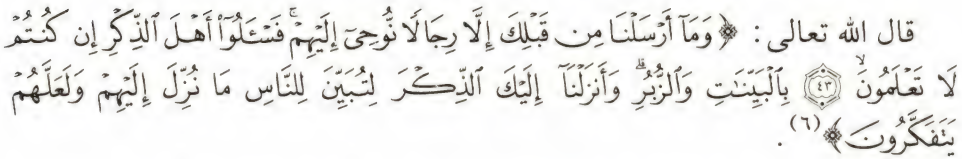 قال الله تعالى : ﴿ وَمَآ أَرۡسَلۡنَا مِن قَبۡلِكَ إِلَّا رِجَالٗا نُّوحِيٓ إِلَيۡهِمۡۖ فَسۡـَٔلُوٓاْ أَهۡلَ ٱلذِّكۡرِ إِن كُنتُمۡ
لَا تَعۡلَمُونَ ۝٤٣ بِٱلۡبَيِّنَٰتِ وَٱلزُّبُرِۗ وَأَنزَلۡنَآ إِلَيۡكَ ٱلذِّكۡرَ لِتُبَيِّنَ لِلنَّاسِ مَا نُزِّلَ إِلَيۡهِمۡ وَلَعَلَّهُمۡ
يَتَفَكَّرُونَ ﴾(٦) .